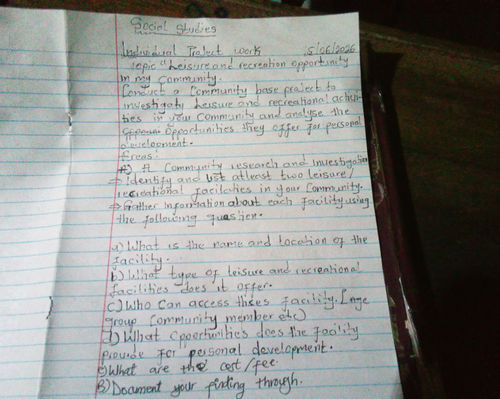 Social Studies
Individual Project work 5/06/2026
Topic "Leisure and recreation opportunity
in my Community.
Conduct a Community base project to
investigate Leisure and recreational activi-
ties in your Community and analyse the
opportunities they offer for personal
development.
Areas:
A) A Community research and Investigation
→ Identify and list atleast two leisure/
recreational facilities in your Community.
→ Gather information about each facility using
the following question.
a) What is the name and location of the
facility.
b) What type of leisure and recreational
facilities does it offer.
c) Who can access thies facility. [age
group Community member etc)
d) What opportunities does the facility
provide for personal development.
e) What are the cost/fee.
B) Document your finding through.